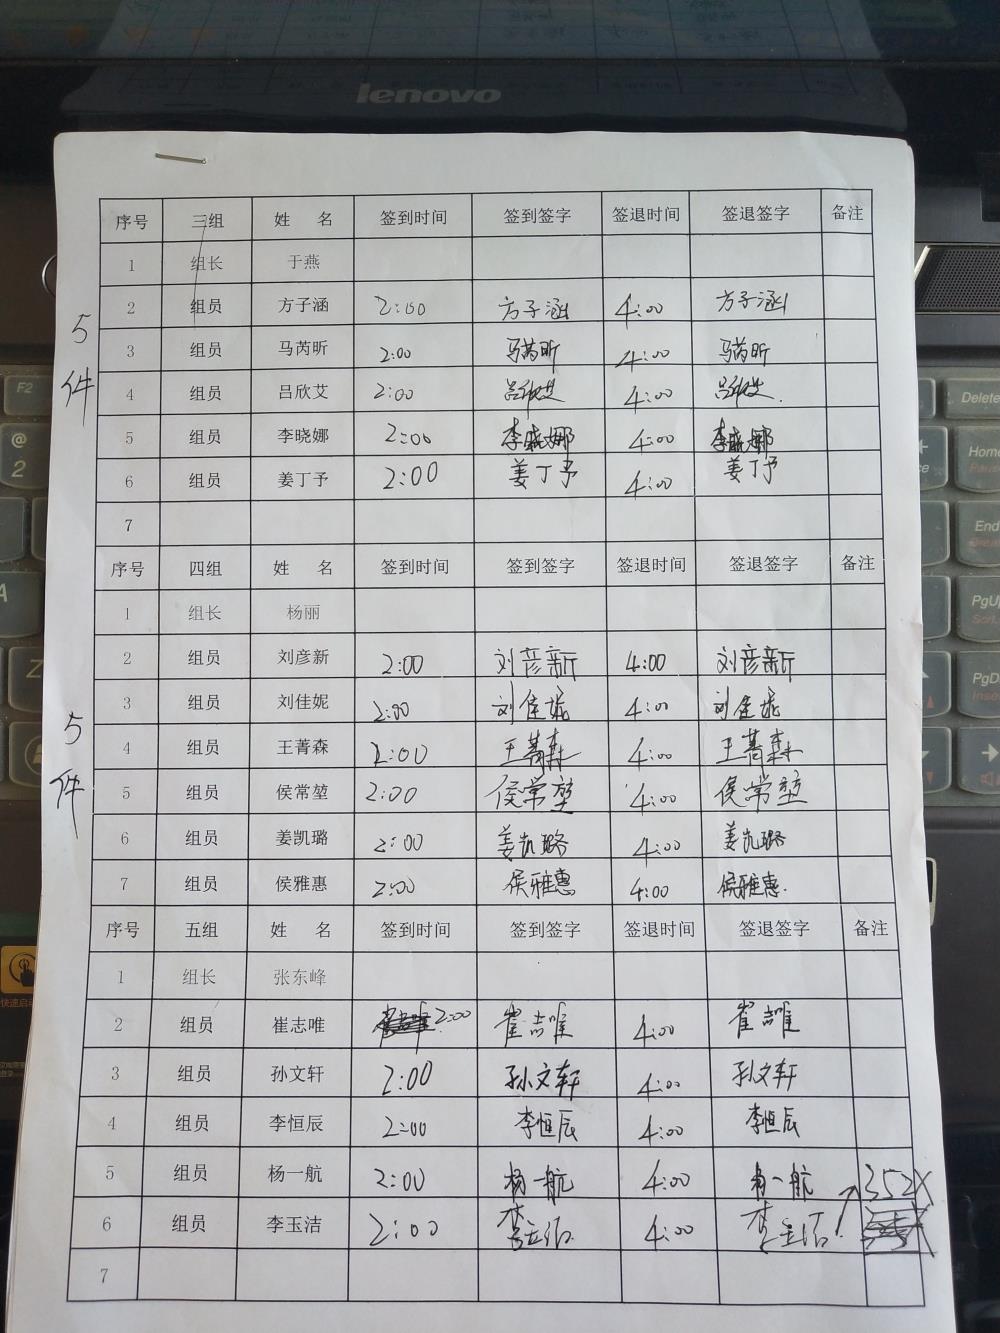 lenovo
序号 三组 姓 名 签到时间 签到签字 签退时间 签退签字 备注
1 组长 于燕
2 组员 方子涵 2:00 方子涵 4:00 方子涵
3 组员 马芮昕 2:00 马芮昕 4:00 马芮昕
4 组员 吕欣艾 2:00 吕欣艾 4:00 吕欣艾
5 组员 李晓娜 2:00 李晓娜 4:00 李晓娜
6 组员 姜丁予 2:00 姜丁予 4:00 姜丁予
7
5件
序号 四组 姓 名 签到时间 签到签字 签退时间 签退签字 备注
1 组长 杨丽
2 组员 刘彦新 2:00 刘彦新 4:00 刘彦新
3 组员 刘佳妮 2:00 刘佳妮 4:00 刘佳妮
4 组员 王菁森 2:00 王菁森 4:00 王菁森
5 组员 侯常堃 2:00 侯常堃 4:00 侯常堃
6 组员 姜凯璐 2:00 姜凯璐 4:00 姜凯璐
7 组员 侯雅惠 2:00 侯雅惠 4:00 侯雅惠
5件
序号 五组 姓 名 签到时间 签到签字 签退时间 签退签字 备注
1 组长 张东峰
2 组员 崔志唯 2:00 崔志唯 4:00 崔志唯
3 组员 孙文轩 2:00 孙文轩 4:00 孙文轩
4 组员 李恒辰 2:00 李恒辰 4:00 李恒辰
5 组员 杨一航 2:00 杨一航 4:00 杨一航 352X
6 组员 李玉洁 2:00 李玉洁 4:00 李玉洁
7
F2
@
2
A
Z
Delete
Home
End
PgUp
PgD